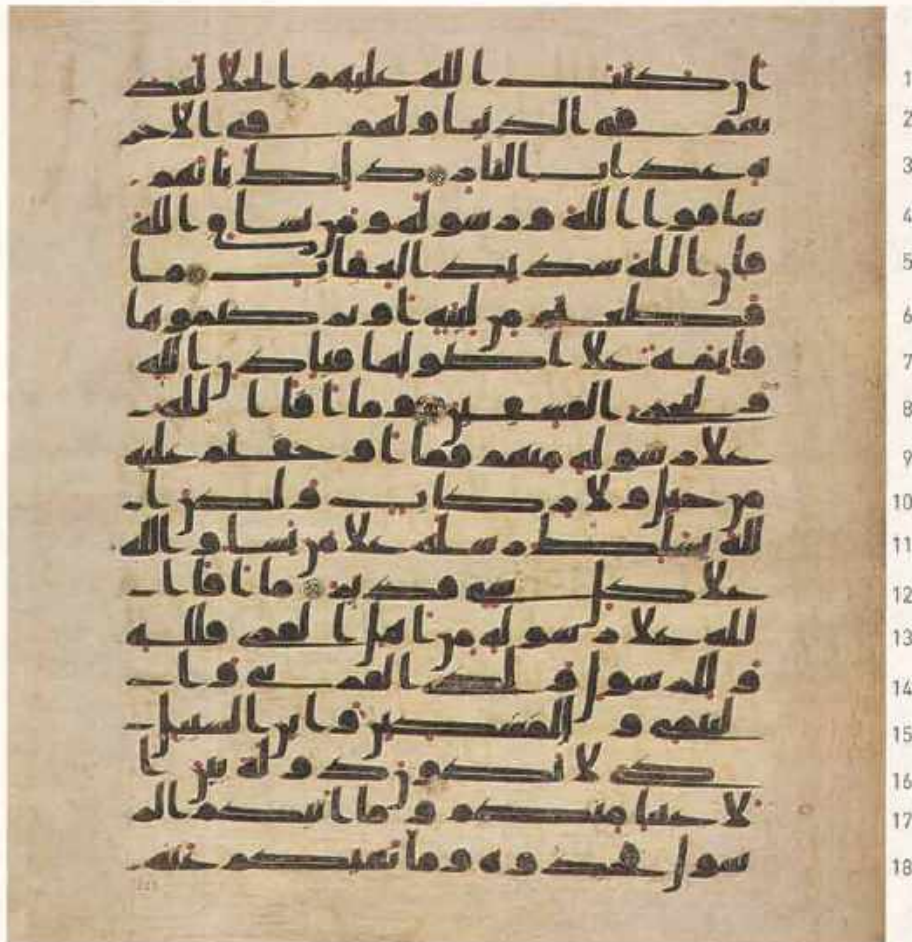 1 ان كتب الله عليهم الجلا لعذ
2 بهم في الدنيا ولهم في الاخر
3 ة عذاب النار ذلك بانهم
4 شاقوا الله ورسوله ومن يشاق الله
5 فان الله شديد العقاب ما
6 قطعتم من لينة او تركتموها
7 قايمة على اصولها فباذن الله
8 وليخزى الفسقين وما افا ا لله
9 على رسوله منهم فما اوجفتم عليه
10 من خيل ولا ركاب ولكن ا
11 لله يسلط رسله على من يشا والله
12 على كل شى قدير ما افا ا
13 لله على رسوله من اهل القرى فلله
14 وللرسول ولذى القربى وا
15 ليتمى والمسكين وابن السبيل
16 كى لا يكون دولة بين ا
17 لاغنيا منكم وما اتيكم الر
18 سول فخذوه وما نهيكم عنه